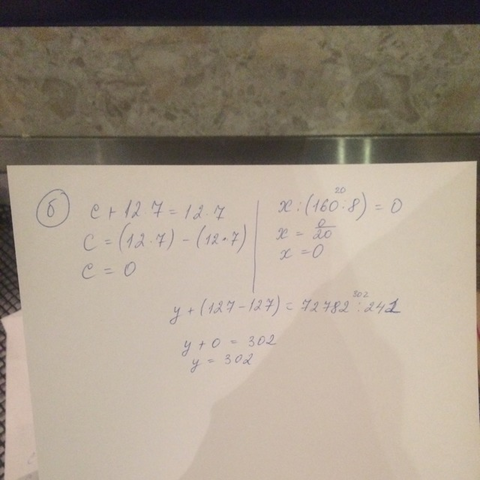 б
c + 12 7 = 12 · 7
c = (12 · 7) - (12 · 7)
c = 0
20
x : (160 · 8) = 0
x = 0/20
x = 0
302
y + (127 - 127) = 72782 : 241
y + 0 = 302
y = 302